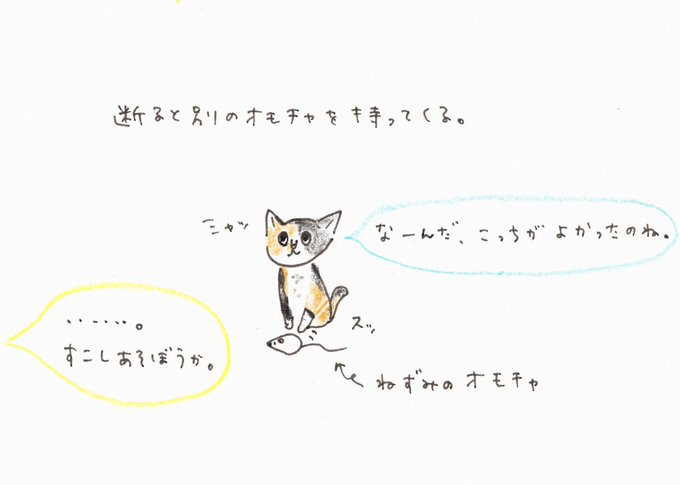 断ると別のオモチャを持ってくる。
ミャッ
なーんだ、こっちがよかったのね。
・・・・・・。
すこしあそぼうか。
スッ
ねずみのオモチャ